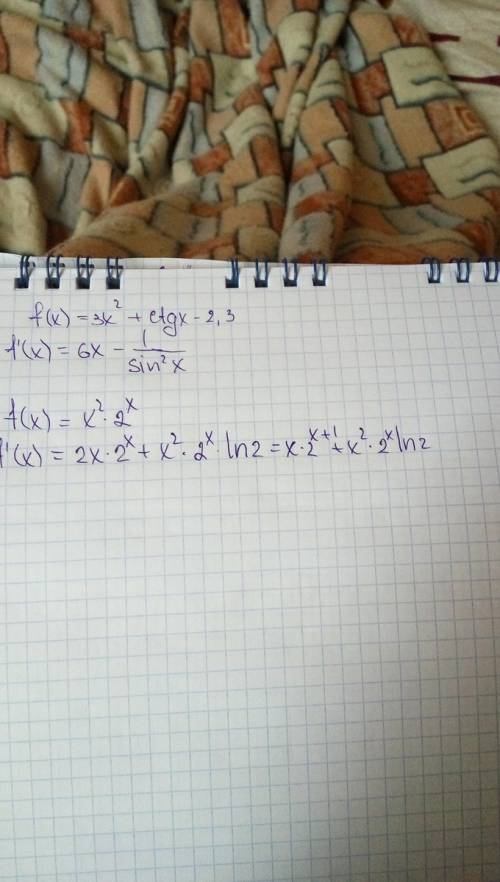 f(x) = 3x² + ctgx - 2,3
f'(x) = 6x - 1/sin²x
f(x) = x² · 2ˣ
f'(x) = 2x · 2ˣ + x² · 2ˣ · ln2 = x · 2ˣ⁺¹ + x² · 2ˣ ln2